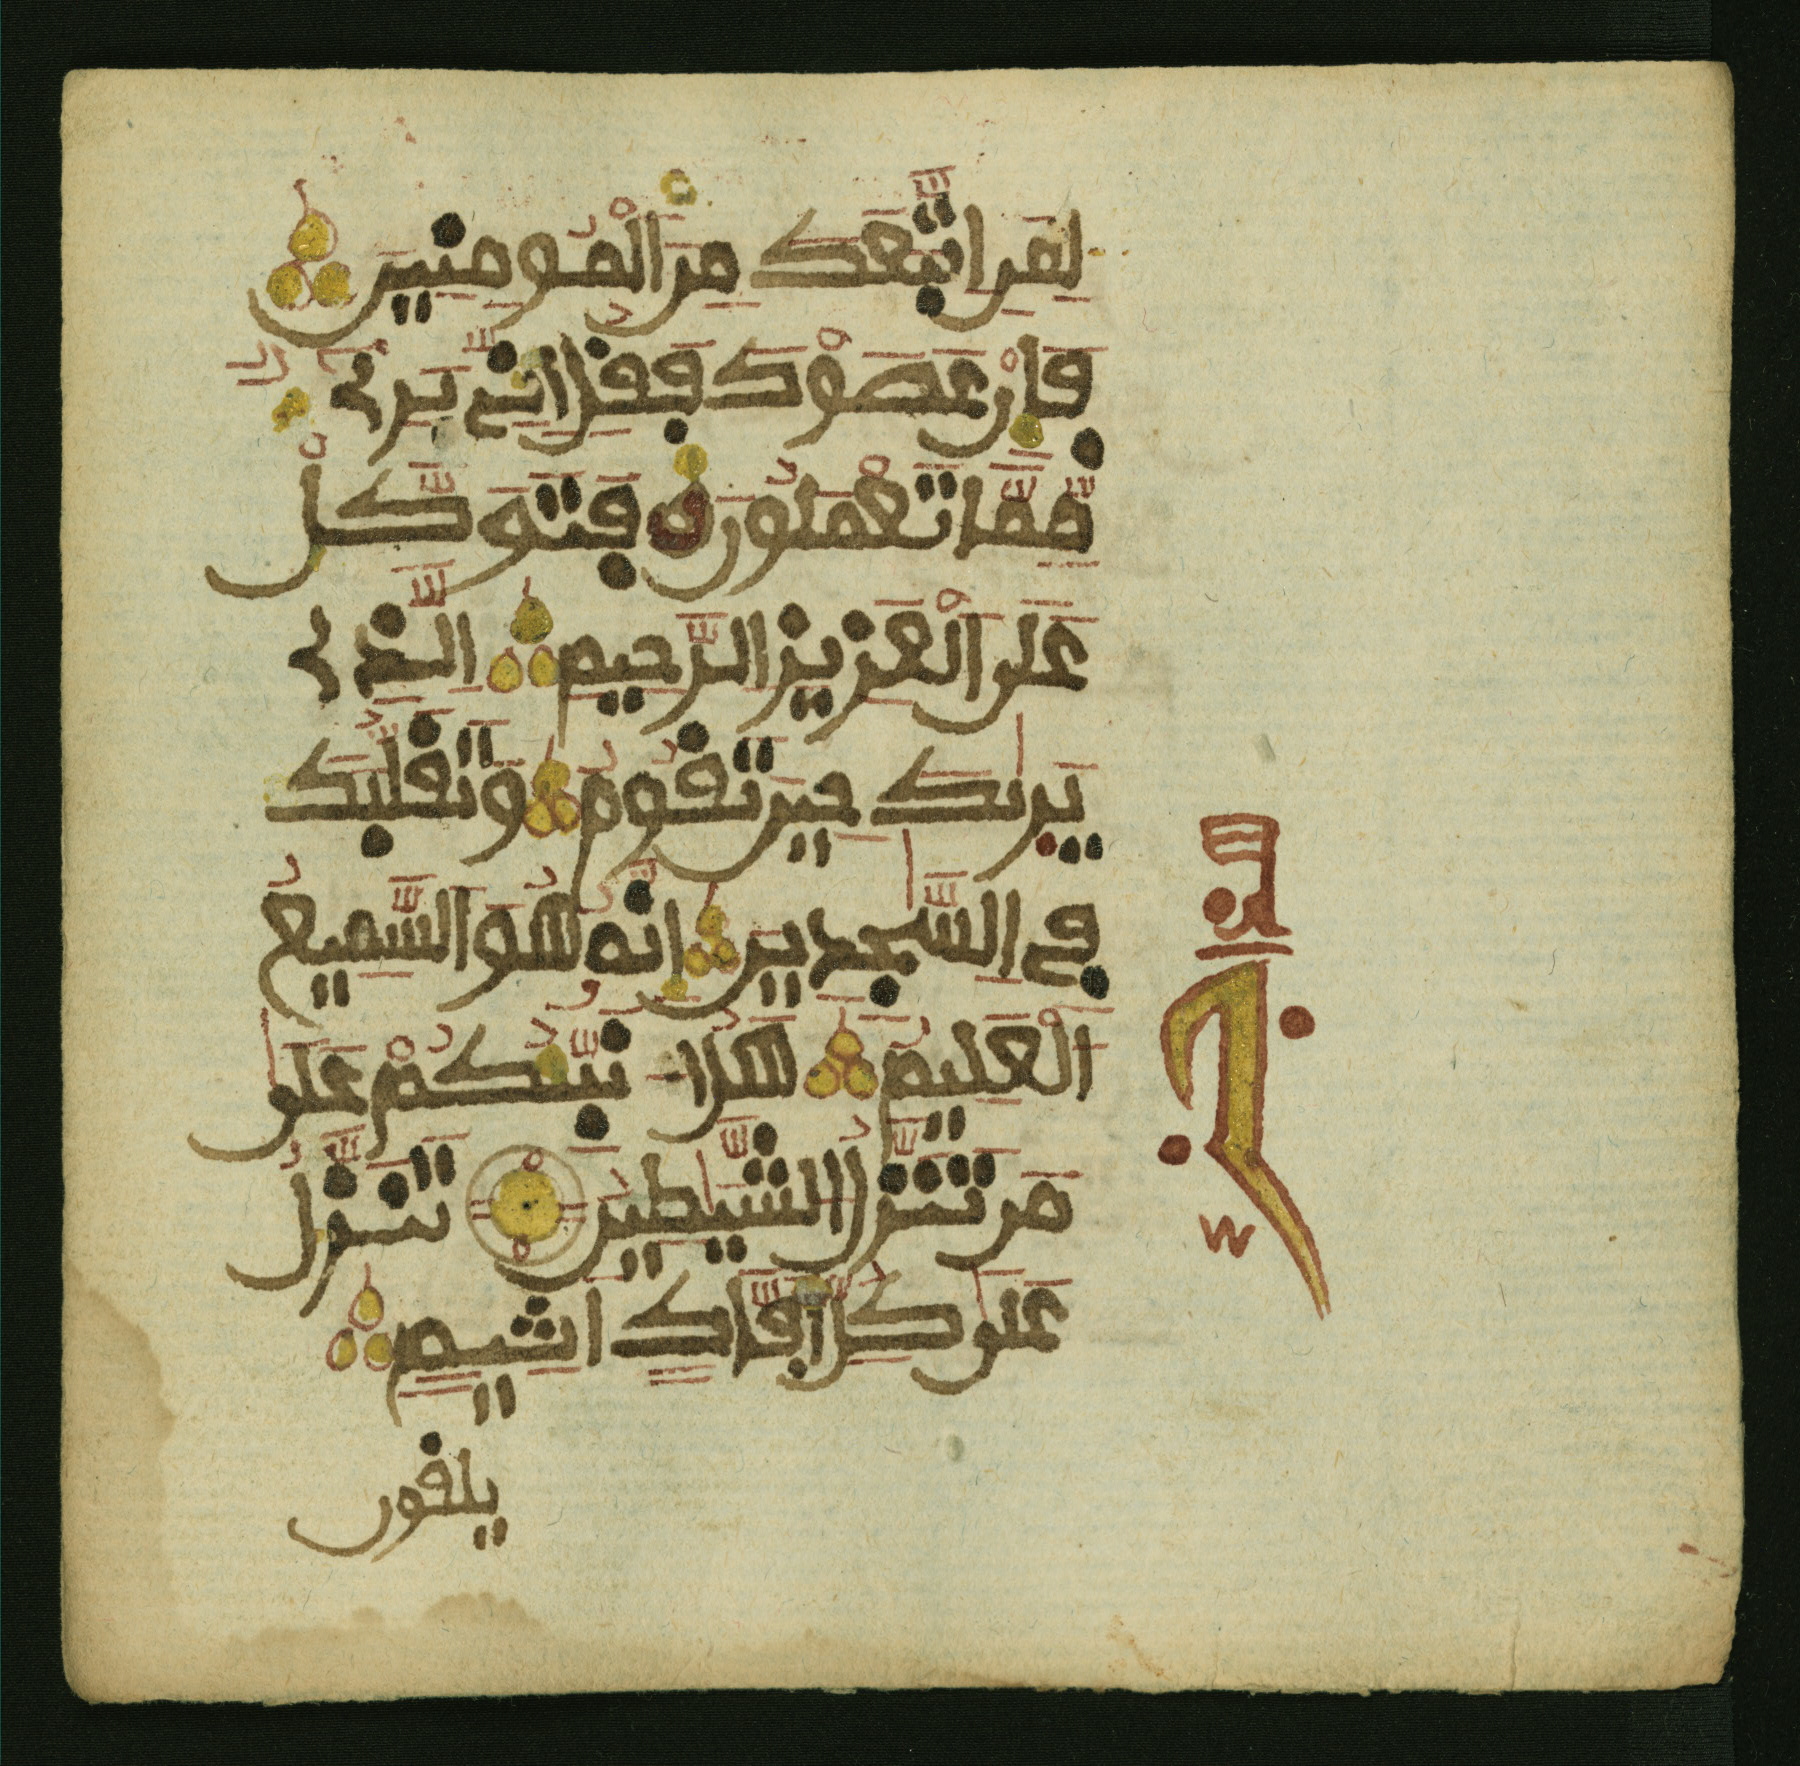 لِمَنِ اتَّبَعَكَ مِنَ الْمُومِنِينَ
فَإِنْ عَصَوْكَ فَقُلِ انِّي بَرِيٓءٌ
مِّمَّا تَعْمَلُونَ فَتَوَكَّلْ
عَلَى الْعَزِيزِ الرَّحِيمِ الَّذِي
يَرىٰكَ حِينَ تَقُومُ وَتَقَلُّبَكَ
فِي السَّٰجِدِينَ إِنَّهُ هُوَ السَّمِيعُ
الْعَلِيمُ هَلُ ا۬نَبِّئُكُمْ عَلَىٰ
مَن تَنَزَّلُ الشَّيَٰطِينُ تَنَزَّلُ
عَلَىٰ كُلِّ أَفَّاكٍ اَثِيمٍ
يلقون